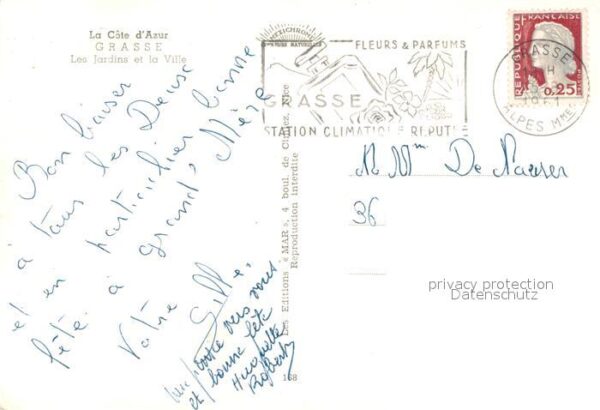 La Côte d'Azur
GRASSE
Les Jardins et la Ville
Bon baiser
à tous les Deux
et en particulier bonne
fête à grand' Mère
Votre Gille,
une pensée vers vous
et bonne fête
Huguette
Robert
Les Editions « MAR », 4 boul. de Cimiez, Nice
Reproduction interdite
168
MEXICHROME
COULEURS NATURELLES
FLEURS & PARFUMS
GRASSE
STATION CLIMATIQUE REPUTÉE
REPUBLIQUE FRANÇAISE
0,25
GRASSE
ALPES MMES
M Mme De
36
privacy protection
Datenschutz